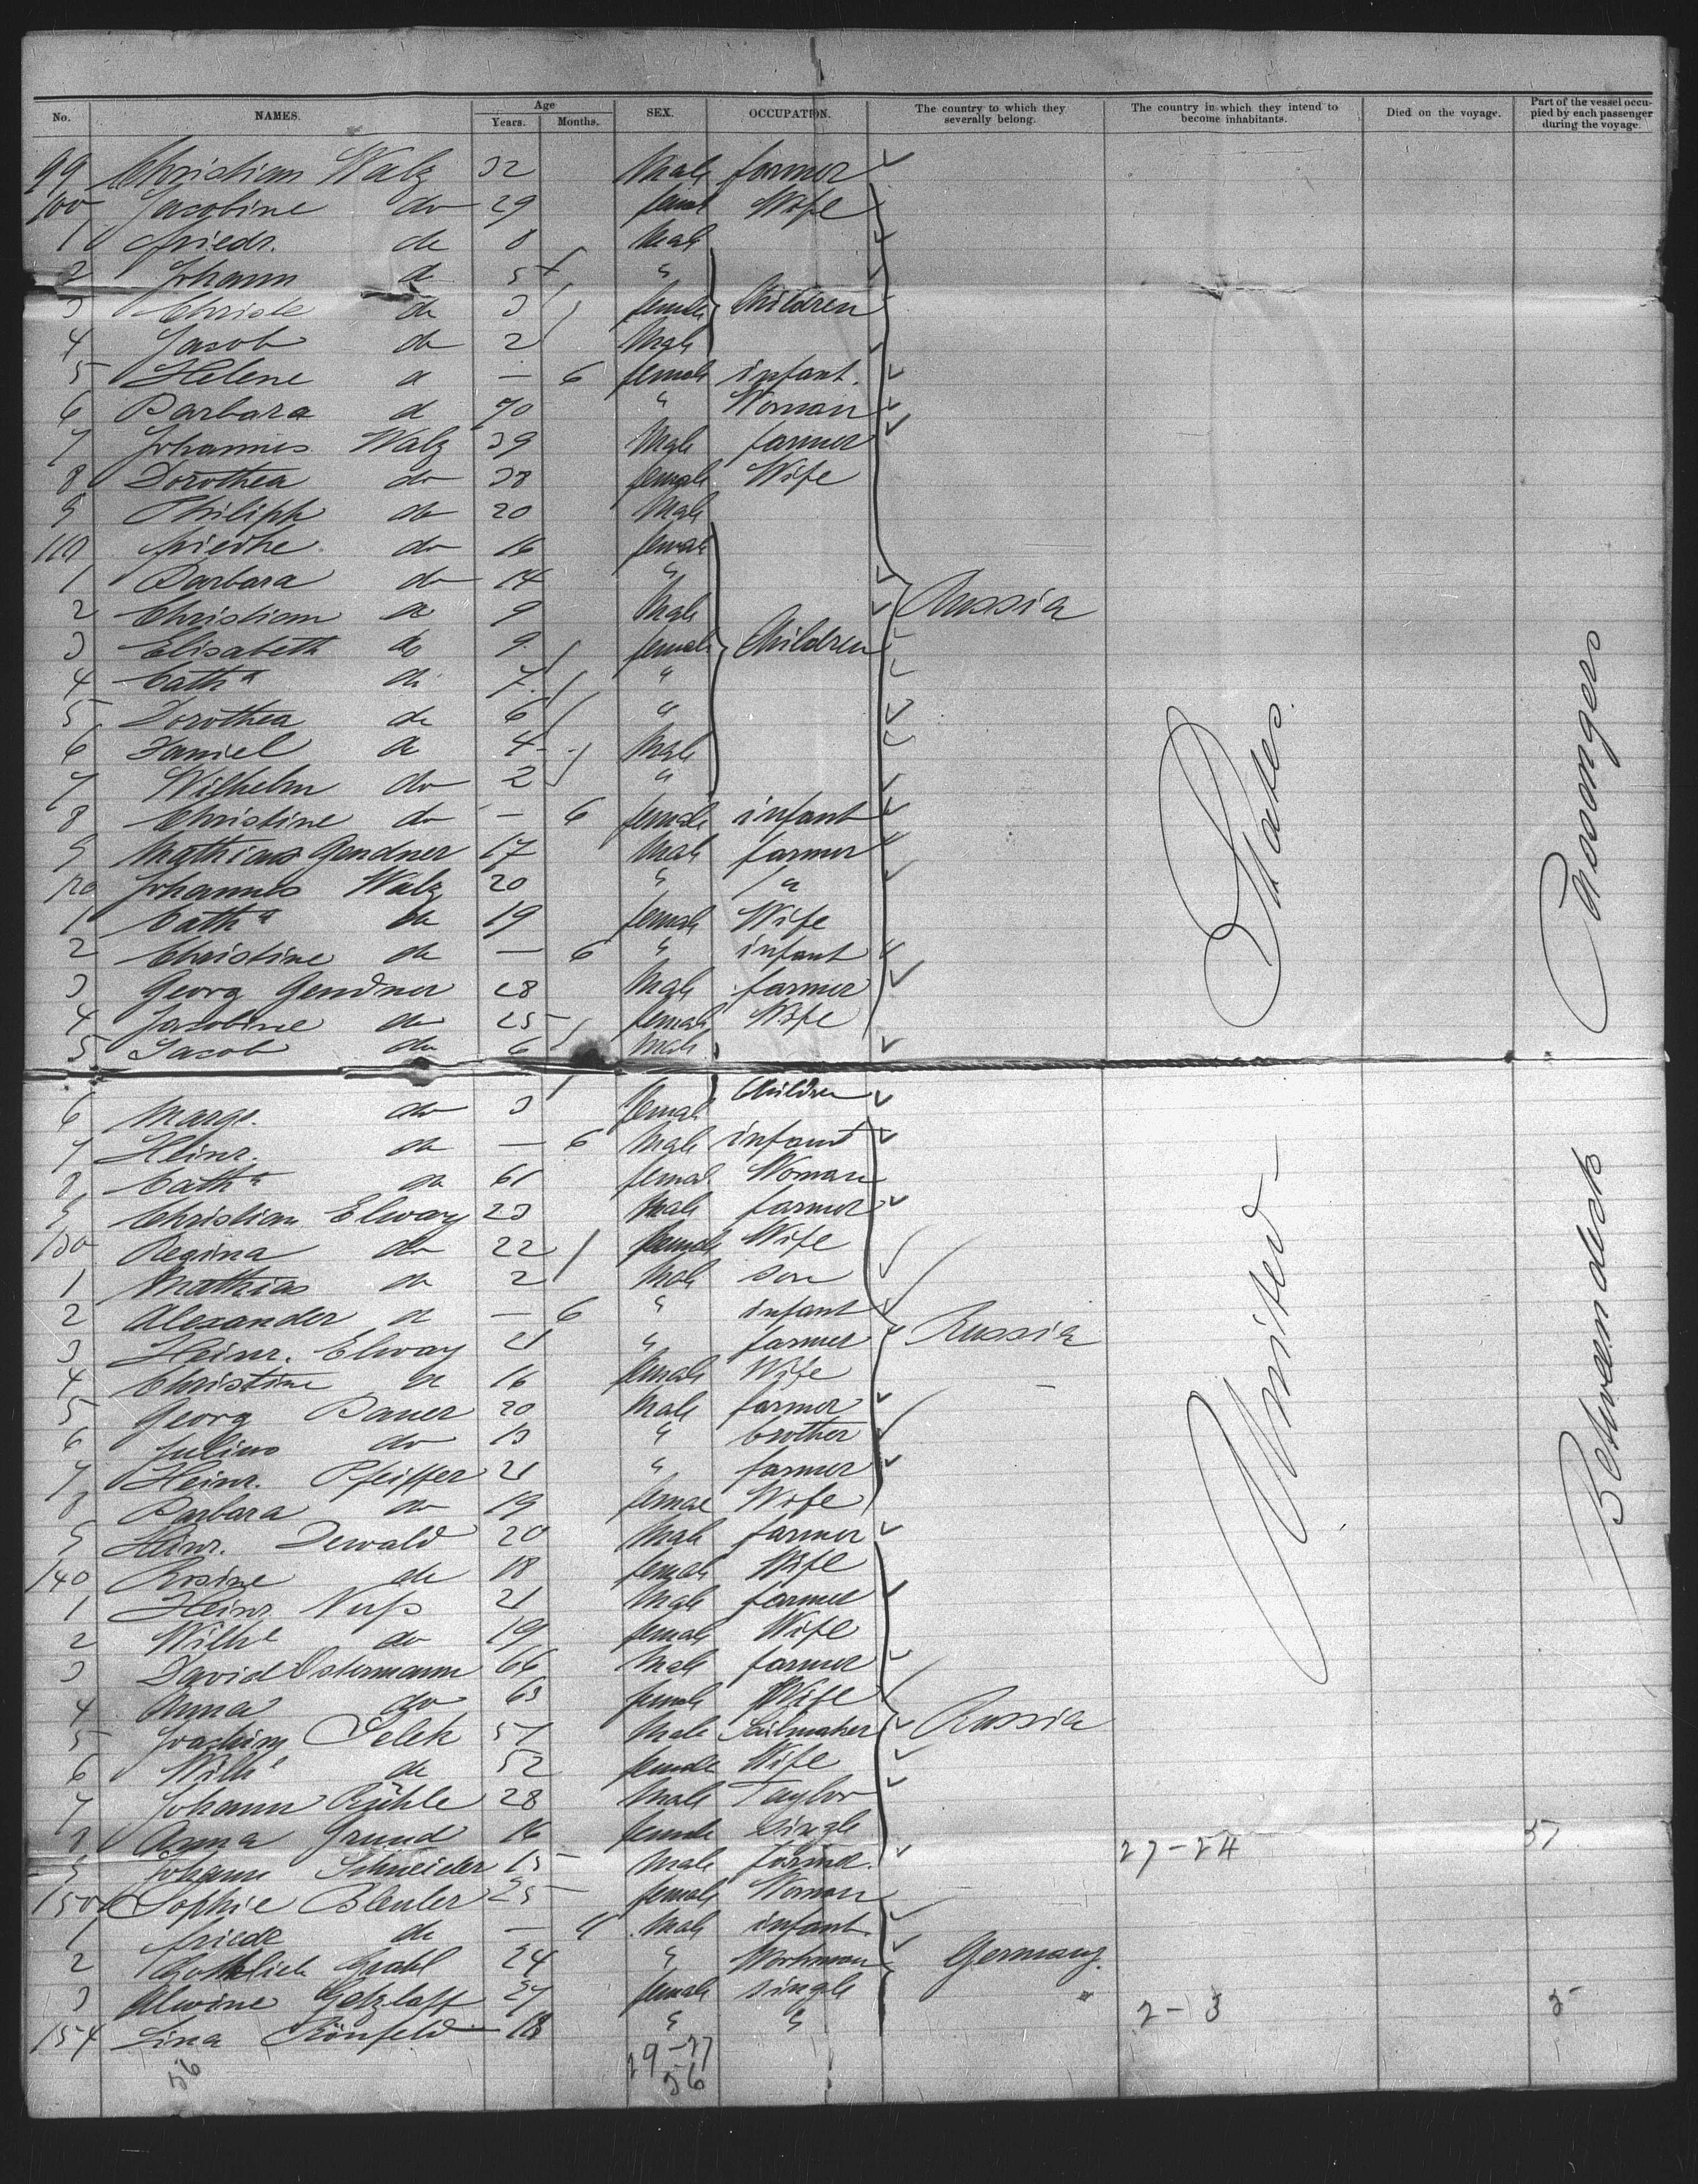 No. NAMES. Age Years. Months. SEX. OCCUPATION. The country to which they severally belong. The country in which they intend to become inhabitants. Died on the voyage. Part of the vessel occupied by each passenger during the voyage.
99 Christian Walz 32 Male farmer
100 Jacobine do 29 femal Wife
1 Friedr. do 8 Male
2 Johann do 5 "
3 Christe do 3 female Children
4 Jacob do 2 Male
5 Helene do — 6 female infant.
6 Barbara do 70 " Woman
7 Johannes Walz 39 Male farmer
8 Dorothea do 38 female Wife
9 Philiph do 20 Male
110 Friedke do 16 female
1 Barbara do 14 "
2 Christian do 9 Male Russia
3 Elisabeth do 9 female Children
4 Cath a do 7 "
5 Dorothea do 6 "
6 Daniel do 4 Male
7 Wilhelm do 2 "
8 Christine do — 6 female infant
9 Mathias Gendner 17 Male farmer
120 Johannes Walz 20 " "
1 Cath a do 19 female Wife
2 Christine do — 6 " infant
3 Georg Gendner 28 Male farmer
4 Jacobine do 25 female Wife
5 Jacob do 6 Male
6 Marge. do 3 female Children
7 Heinr. do — 6 Male infant
8 Cath a do 61 female Woman
9 Christian Elway 23 Male farmer
130 Regina do 22 female Wife
1 Mathias do 2 Male son
2 Alexander do — 6 " infant
3 Heinr. Elway 21 " farmer Russia
4 Christine do 16 female Wife
5 Georg Bauer 20 Male farmer
6 Julius do 13 " brother
7 Heinr. Pfeiffer 21 " farmer
8 Barbara do 19 female Wife
9 Heinr. Dewald 20 Male farmer
140 Rosine do 18 female Wife
1 Heinr. Nuß 21 Male farmer
2 Wilhe do 19 female Wife
3 David Ostermann 66 Male farmer
4 Anna do 63 female Wife
5 Joachim Selek 57 Male Sailmaker Russia
6 Wilhe do 52 female Wife
7 Johann Rühle 28 Male Taylor
8 Anna Grund 16 female single
9 Johann Schneider 15 Male farmer. 27-24 51
150 Sophie Bleuler 25 female Woman
1 Friedr do — 11 Male infant.
2 Gottlieb Grahl 24 " Workman Germany.
3 Alwine Getzlaff 27 female single
154 Lina Rönfeld 18 " " 2-3 5
56 29-27
56
United States.
Betweendeck Passengers